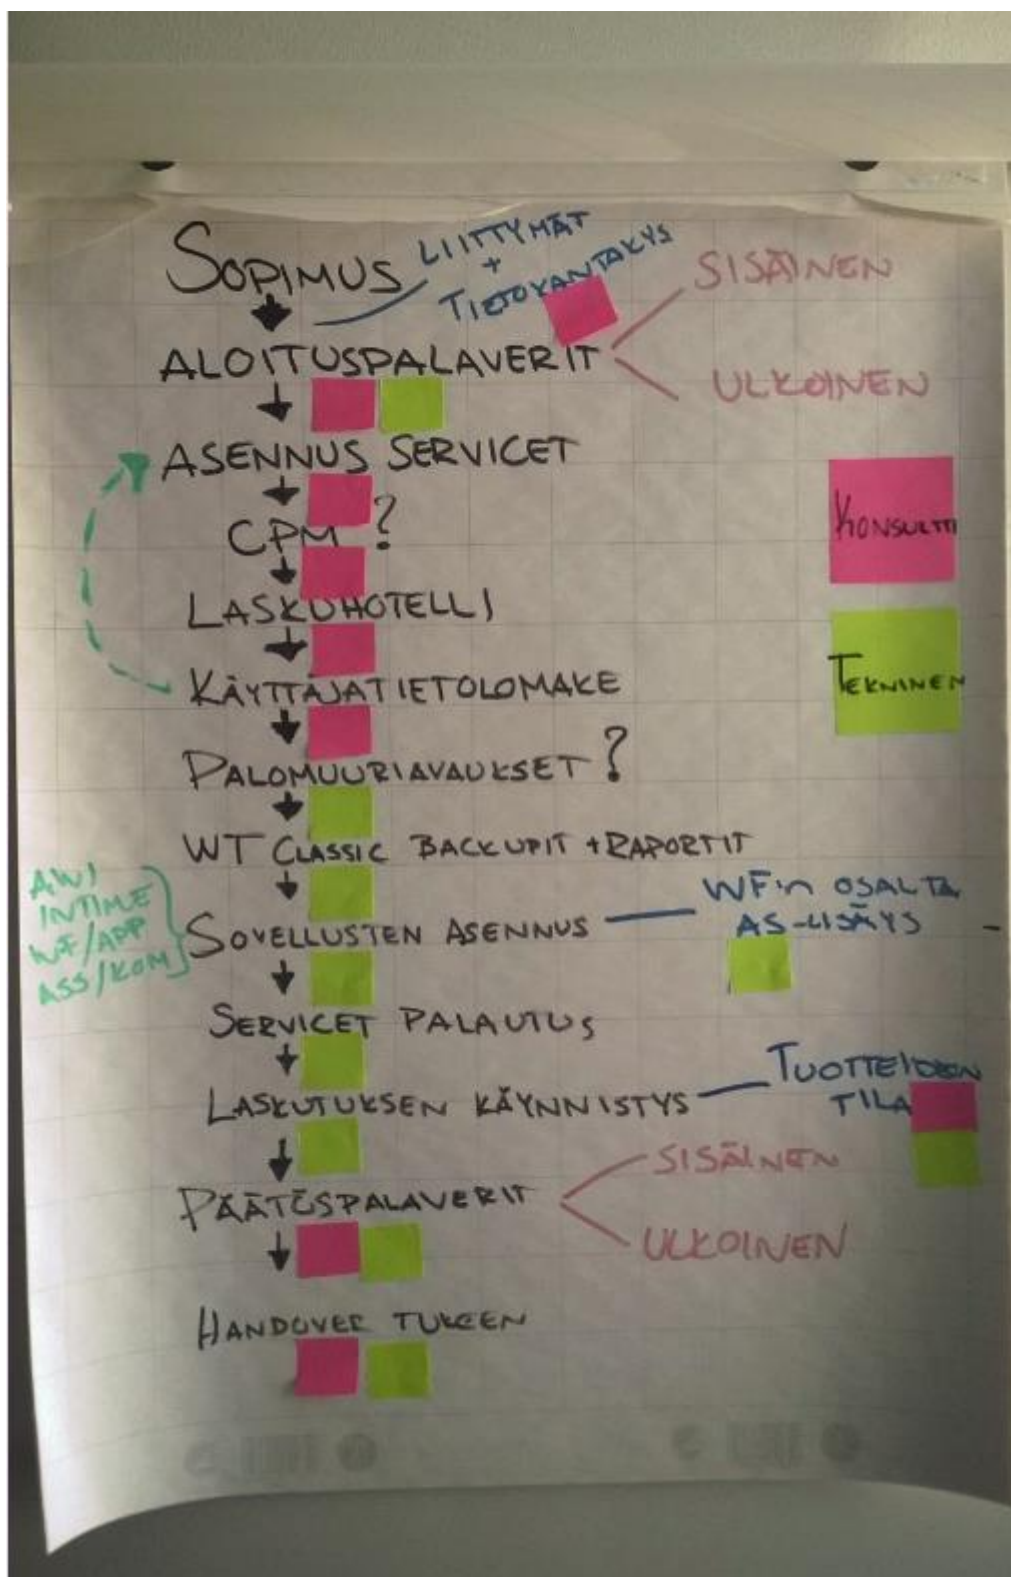 SOPIMUS
LIITTYMÄT
+
TIETOKANTAKYS
ALOITUSPALAVERIT
SISÄINEN
ULKOINEN
ASENNUS SERVICET
CPM ?
KONSULTTI
LASKUHOTELLI
KÄYTTÄJATIETOLOMAKE
TEKNINEN
PALOMUURIAVAUKSET ?
WT CLASSIC BACKUPIT + RAPORTIT
AWI
INTIME
WF/APP
ASS/KOM
SOVELLUSTEN ASENNUS
WF:n OSALTA
AS-LISÄYS
SERVICET PALAUTUS
LASKUTUKSEN KÄYNNISTYS
TUOTTEIDEN
TILA
PÄÄTÖSPALAVERIT
SISÄINEN
ULKOINEN
HANDOVER TUKEEN